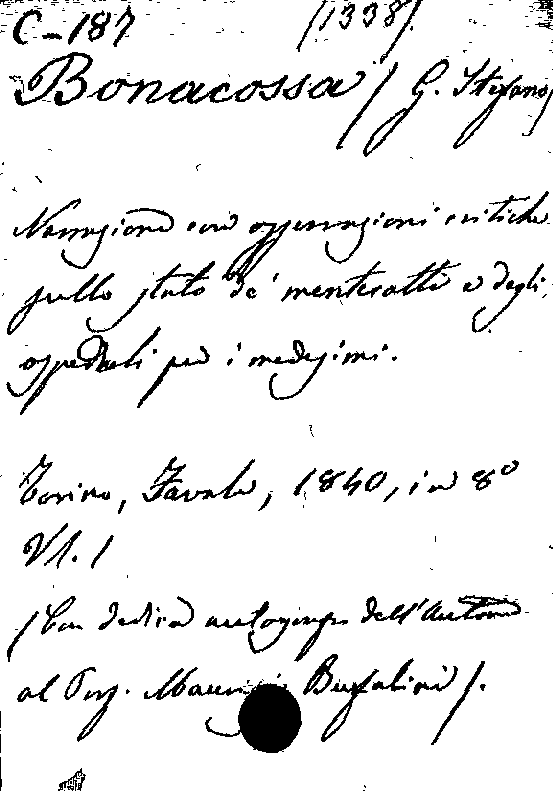 C-187 (1338).
Bonacossa (G. Stefano)
Narrazione con osservazioni critiche
sullo stato de' mentecatti e degli
ospedali per i medesimi.
Torino, Favale, 1840, in 8º
Vl. 1
(Con dedica autografa dell'Autore
al Prof. Maurizio Bufalini).